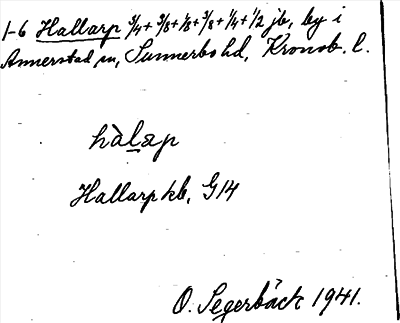 1-6 Hallarp 3/4 + 3/8 + 1/8 + 3/8 + 1/4 + 1/2 jb, by i
Annerstad sn, Sunnerbo hd, Kronob. l.
hàlap
Hallarp kb, G14
O. Segerbäck 1941.